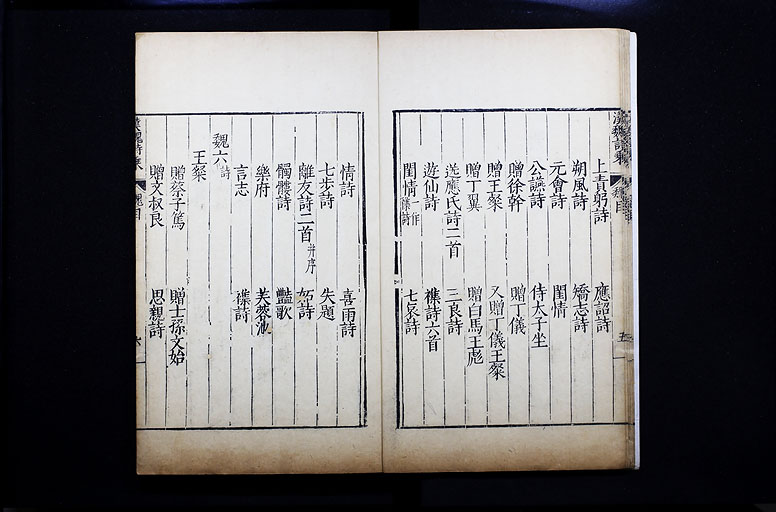 漢魏詩乘
魏目
五
上責躬詩 應詔詩
朔風詩 矯志詩
元會詩 閨情
公讌詩 侍太子坐
贈徐幹 贈丁儀
贈王粲 又贈丁儀王粲
贈丁翼 贈白馬王彪
送應氏詩二首 三良詩
遊仙詩 襍詩六首
閨情一作襍詩 七哀詩
情詩 喜雨詩
七步詩 失題
離友詩二首并序 妬詩
髑髏詩 豔歌
樂府 芙蓉池
言志 襍詩
魏六詩
王粲
贈蔡子篤 贈士孫文始
贈文叔良 思親詩
漢魏詩乘
魏目
六